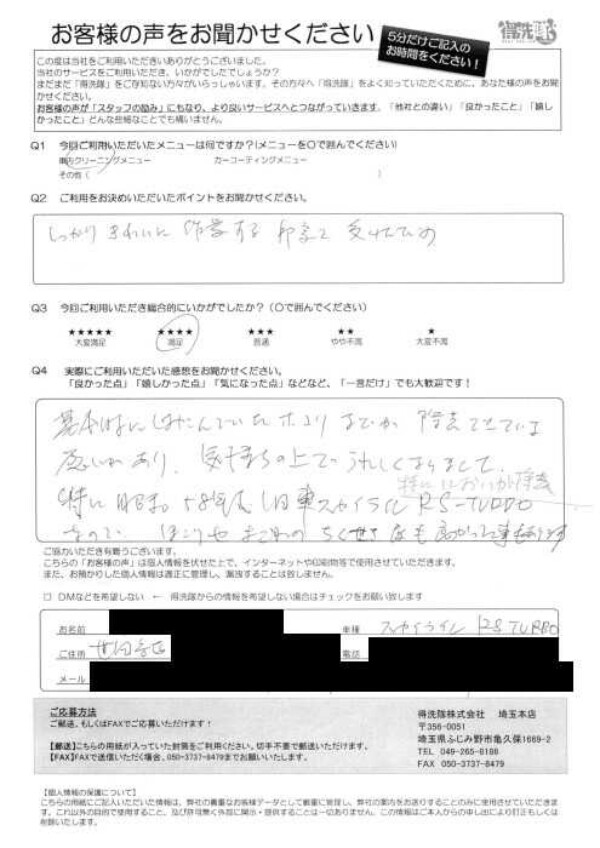 お客様の声をお聞かせください
5分だけご記入の
お時間をください！
得洗隊
この度は当社をご利用いただきありがとうございました。
当社のサービスをご利用いただき、いかがでしたでしょうか？
まだまだ「得洗隊」をご存知ない方々がいらっしゃいます。その方々へ「得洗隊」をよく知っていただくために、あなた様の声をお聞
かせください。
お客様の声が「スタッフの励み」にもなり、より良いサービスへとつながっていきます。「他社との違い」「良かったこと」「嬉し
かったこと」どんな些細なことでも構いません。
Q1 今回ご利用いただいたメニューは何ですか?(メニューを○で囲んでください)
車内クリーニングメニュー カーコーティングメニュー
その他（ ）
Q2 ご利用をお決めいただいたポイントをお聞かせください。
しっかり きれいに 作業する 印象を 受けたため
Q3 今回ご利用いただき総合的にいかがでしたか？（○で囲んでください）
★★★★★ ★★★★ ★★★ ★★ ★
大変満足 満足 普通 やや不満 大変不満
Q4 実際にご利用いただいた感想をお聞かせください。
「良かった点」「嬉しかった点」「気になった点」などなど、「一言だけ」でも大歓迎です！
ホコリ までが 除去できている
感じが あり、気持ちの上でうれしくなりまして、
特に においが除去
特に 昭和58年式 旧車スカイライン RS-TURBO
なので、ほこりや よごれの
ご協力いただき有難うございます。
こちらの「お客様の声」は個人情報を伏せた上で、インターネットや印刷物等で使用させていただきます。
また、お預かりした個人情報は適正に管理し、漏洩することは致しません。
□ DMなどを希望しない ← 得洗隊からの情報を希望しない場合はチェックをお願い致します
お名前 車種 スカイライン RS TURBO
ご住所 世田谷区 電話
メール
ご応募方法
ご郵送、もしくはFAXでご応募いただけます！
【郵送】こちらの用紙が入っていた封筒をご利用ください。切手不要で郵送いただけます。
【FAX】FAXで送信いただく場合、050-3737-8479までお願いいたします。
得洗隊株式会社 埼玉本店
〒356-0051
埼玉県ふじみ野市亀久保1669-2
TEL 049-265-6186
FAX 050-3737-8479
【個人情報の保護について】
こちらの用紙にご記入いただいた情報は、弊社の貴重なお客様データとして厳重に管理し、弊社の案内をお送りすることのみに使用させていただきま
す。これ以外の目的で使用すること、及び許可無く外部に開示・提供することは一切ありません。この情報はご本人からの申し出により訂正もしくは
削除いたします。